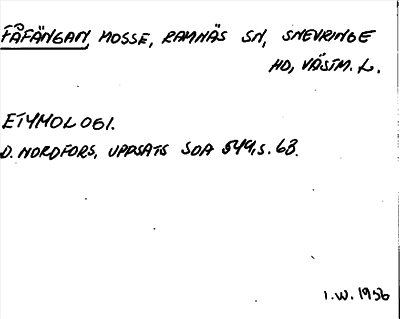 FÅFÄNGAN, MOSSE, RAMNÄS SN, SNEVRINGE
HD, VÄSTM. L.
ETYMOLOGI.
D. NORDFORS, UPPSATS SOA 549, S. 63.
I.W. 1956